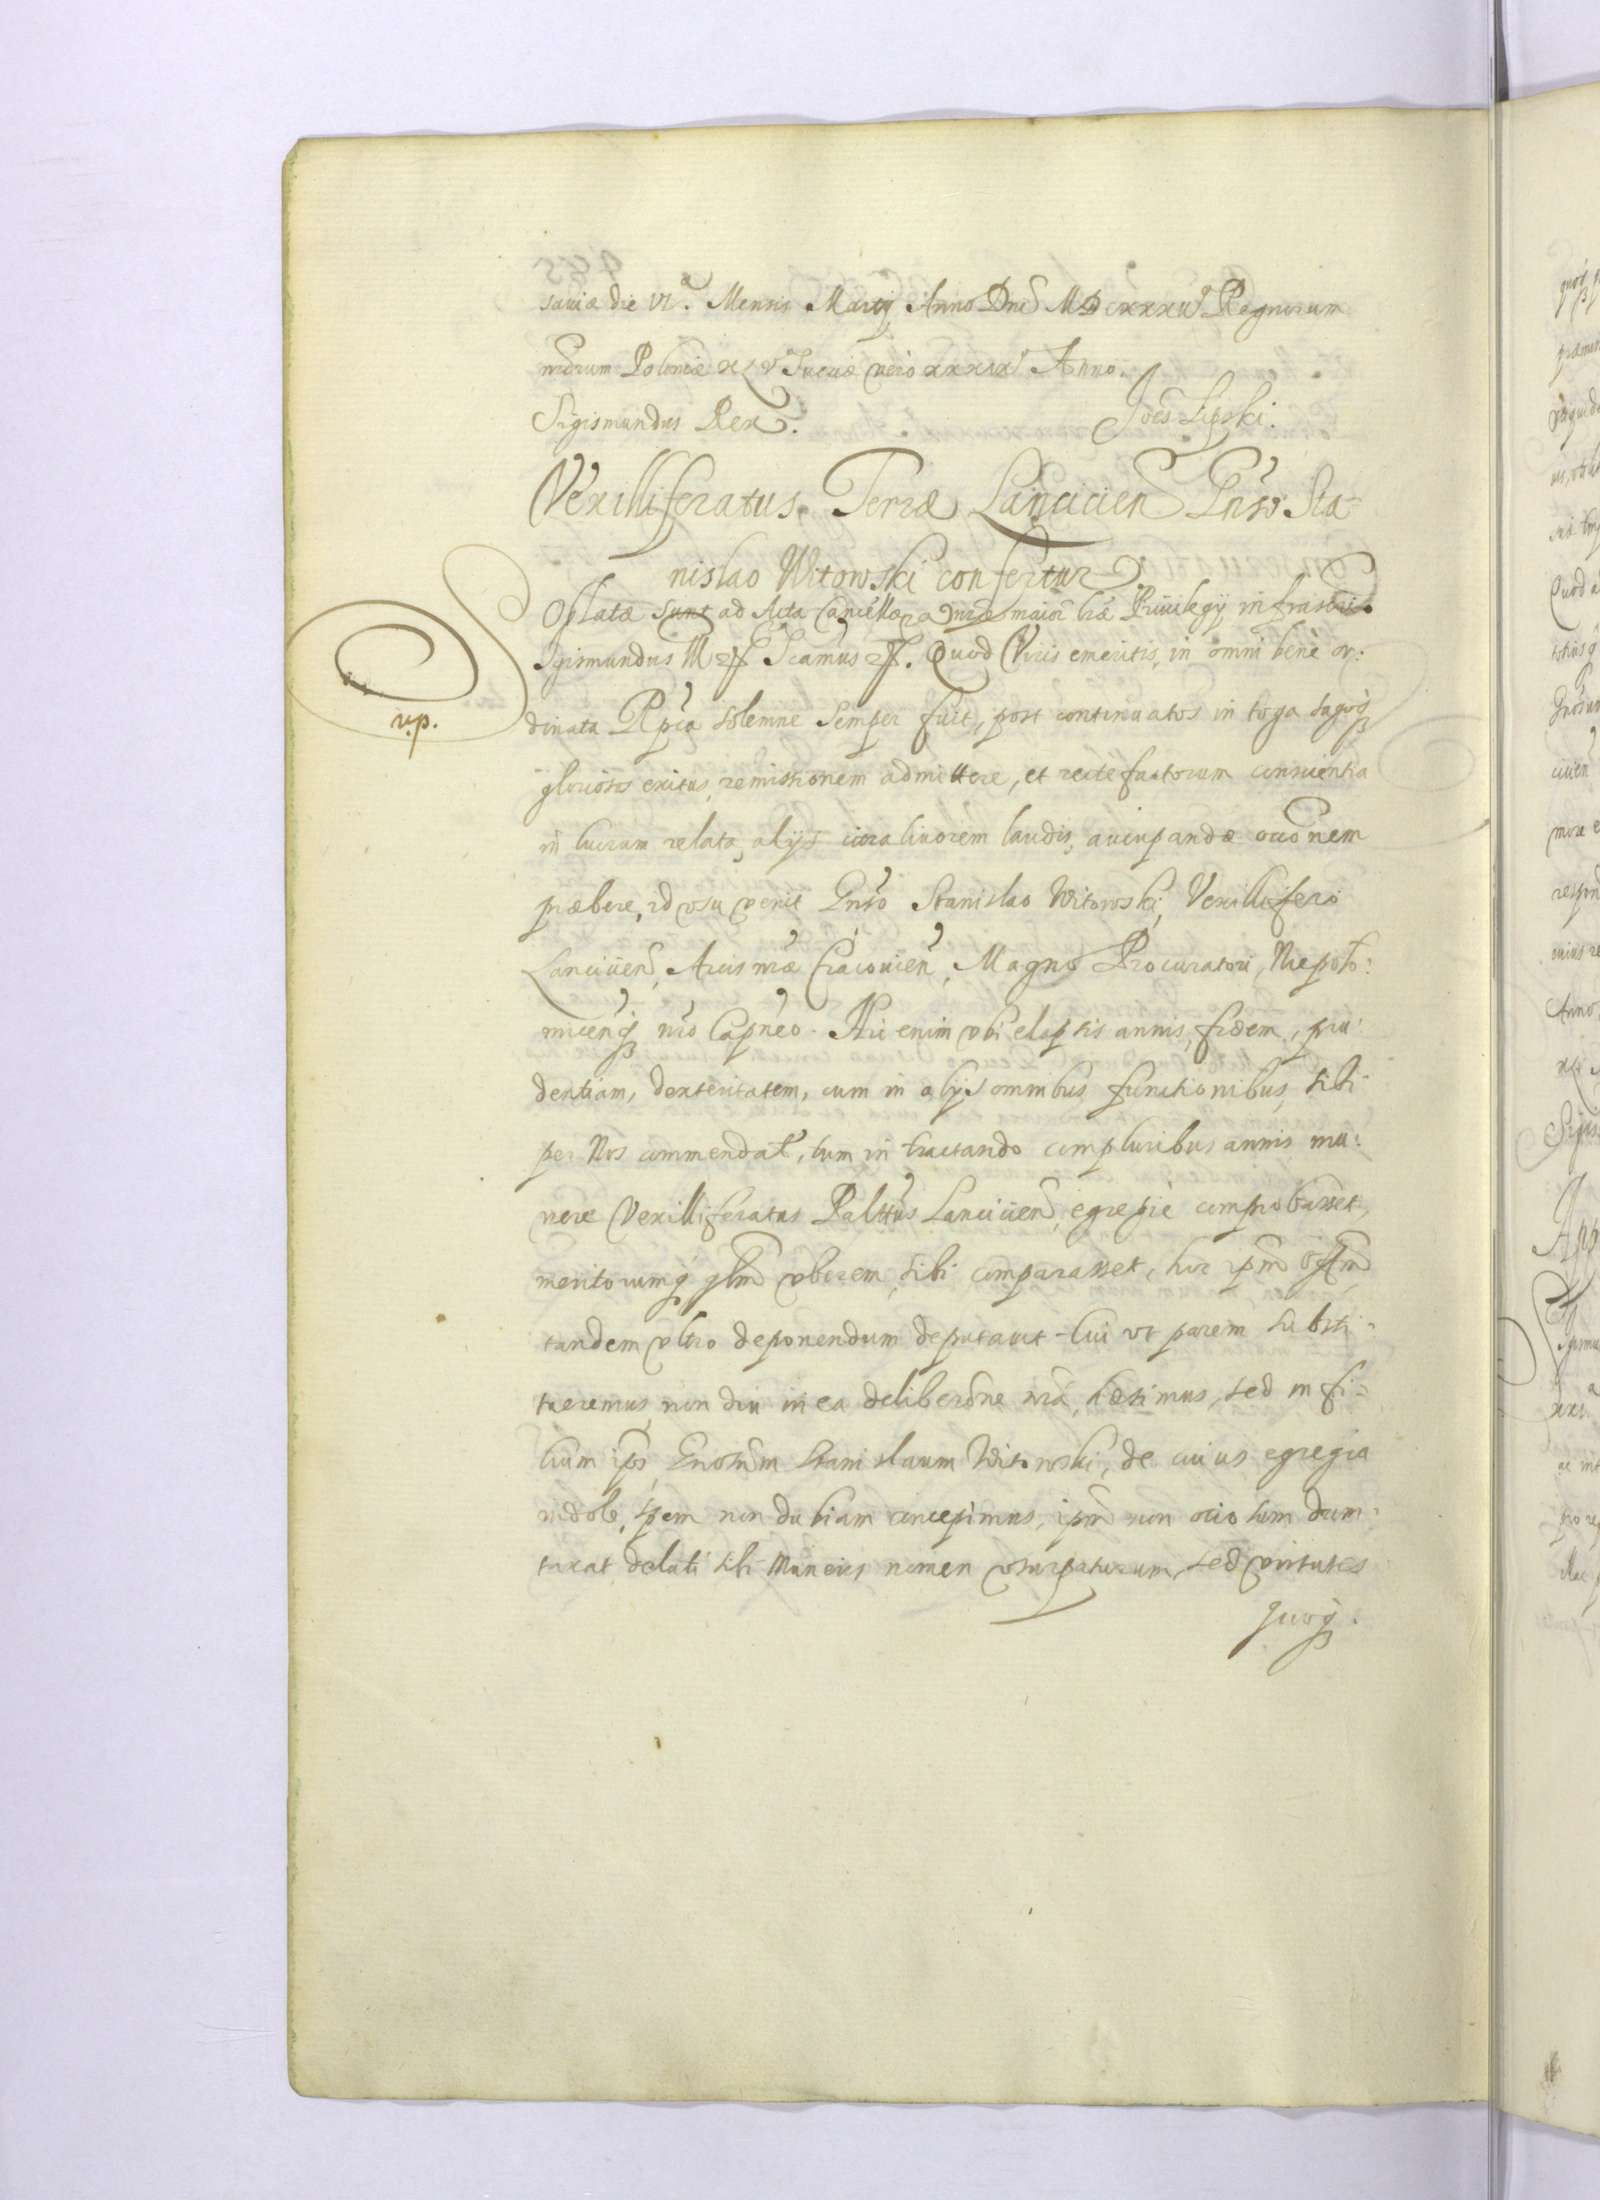 sauiæ die VI.ª Mensis Martij Anno Dni MDCXXXII Regnorum
nrorum Poloniæ XLV Sueciæ vero XXXIX Anno.
Sigismundus Rex. Joes Lipski.
Vexilliferatus Terræ Lancicien Gnso Sta-
nislao Witowski confertur
Oblatæ sunt ad Acta Cancellar nræ maior lræ Priuilegij infrascri.
Sigismundus Scamus. Quod Viris emeritis, in omni benè or:
v.p.
dinata Rpca solemne semper fuit, post continuatos in toga sagoq
gloriosos exitus, remissionem admittere, et rectè factorum conscientia
in lucrum relata, alijs citra liuorem laudis, aucupandæ occonem
præbere, id vsu venit Gnso Stanislao Witowski, Vexillifero
Lancicien, Arcis nræ Cracouien, Magno Procuratori, Niepoło:
micenq nro Capneo. Hic enim vbi elapsis annis, fidem, pru:
dentiam, dexteritatem, cum in alijs omnibus functionibus, sibi
per Nos commendat, tum in tractando compluribus annis mu:
nere Vexilliferatus Palttus Lancicien, egregiè comprobasset,
meritorumq vberem, sibi comparasset, hoc ipm
tandem vltro deponendum deputauit. Cui vt parem substi:
tueremus, non diu in ea deliberone nra, hæsimus, sed in fi:
lium ips, Gnosum Stanislaum Witowski, de cuius egregia
indole, spem non dubiam concepimus, ipm non ocio sum dum:
taxat delati sibi Muneris nomen vsurpaturum, sed virtutes
quoq.